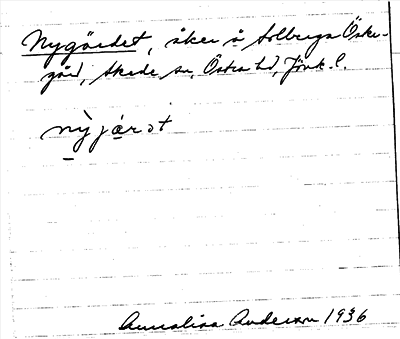 Nygärdet, åker å Solberga Öster-
gård, Skede sn, Östra hd, Jönk. l.
nỳjärət
Annalisa Anderson 1936